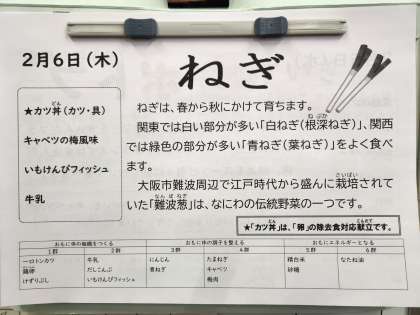 2月6日(木)
ねぎ
★カツ丼(カツ・具)
キャベツの梅風味
いもけんぴフィッシュ
牛乳
ねぎは、春から秋にかけて育ちます。
関東では白い部分が多い「白ねぎ(根深ねぎ)」、関西
では緑色の部分が多い「青ねぎ(葉ねぎ)」をよく食べ
ます。
大阪市難波周辺で江戸時代から盛んに栽培されて
いた「難波葱」は、なにわの伝統野菜の一つです。
★「カツ丼」は、「卵」の除去食対応献立です。
おもに体の組織をつくる おもに体の調子を整える おもにエネルギーとなる
1群 2群 3群 4群 5群 6群
一口トンカツ 牛乳 にんじん たまねぎ 精白米 なたね油
鶏卵 だしこんぶ 青ねぎ キャベツ 砂糖
けずりぶし いもけんぴフィッシュ 梅肉